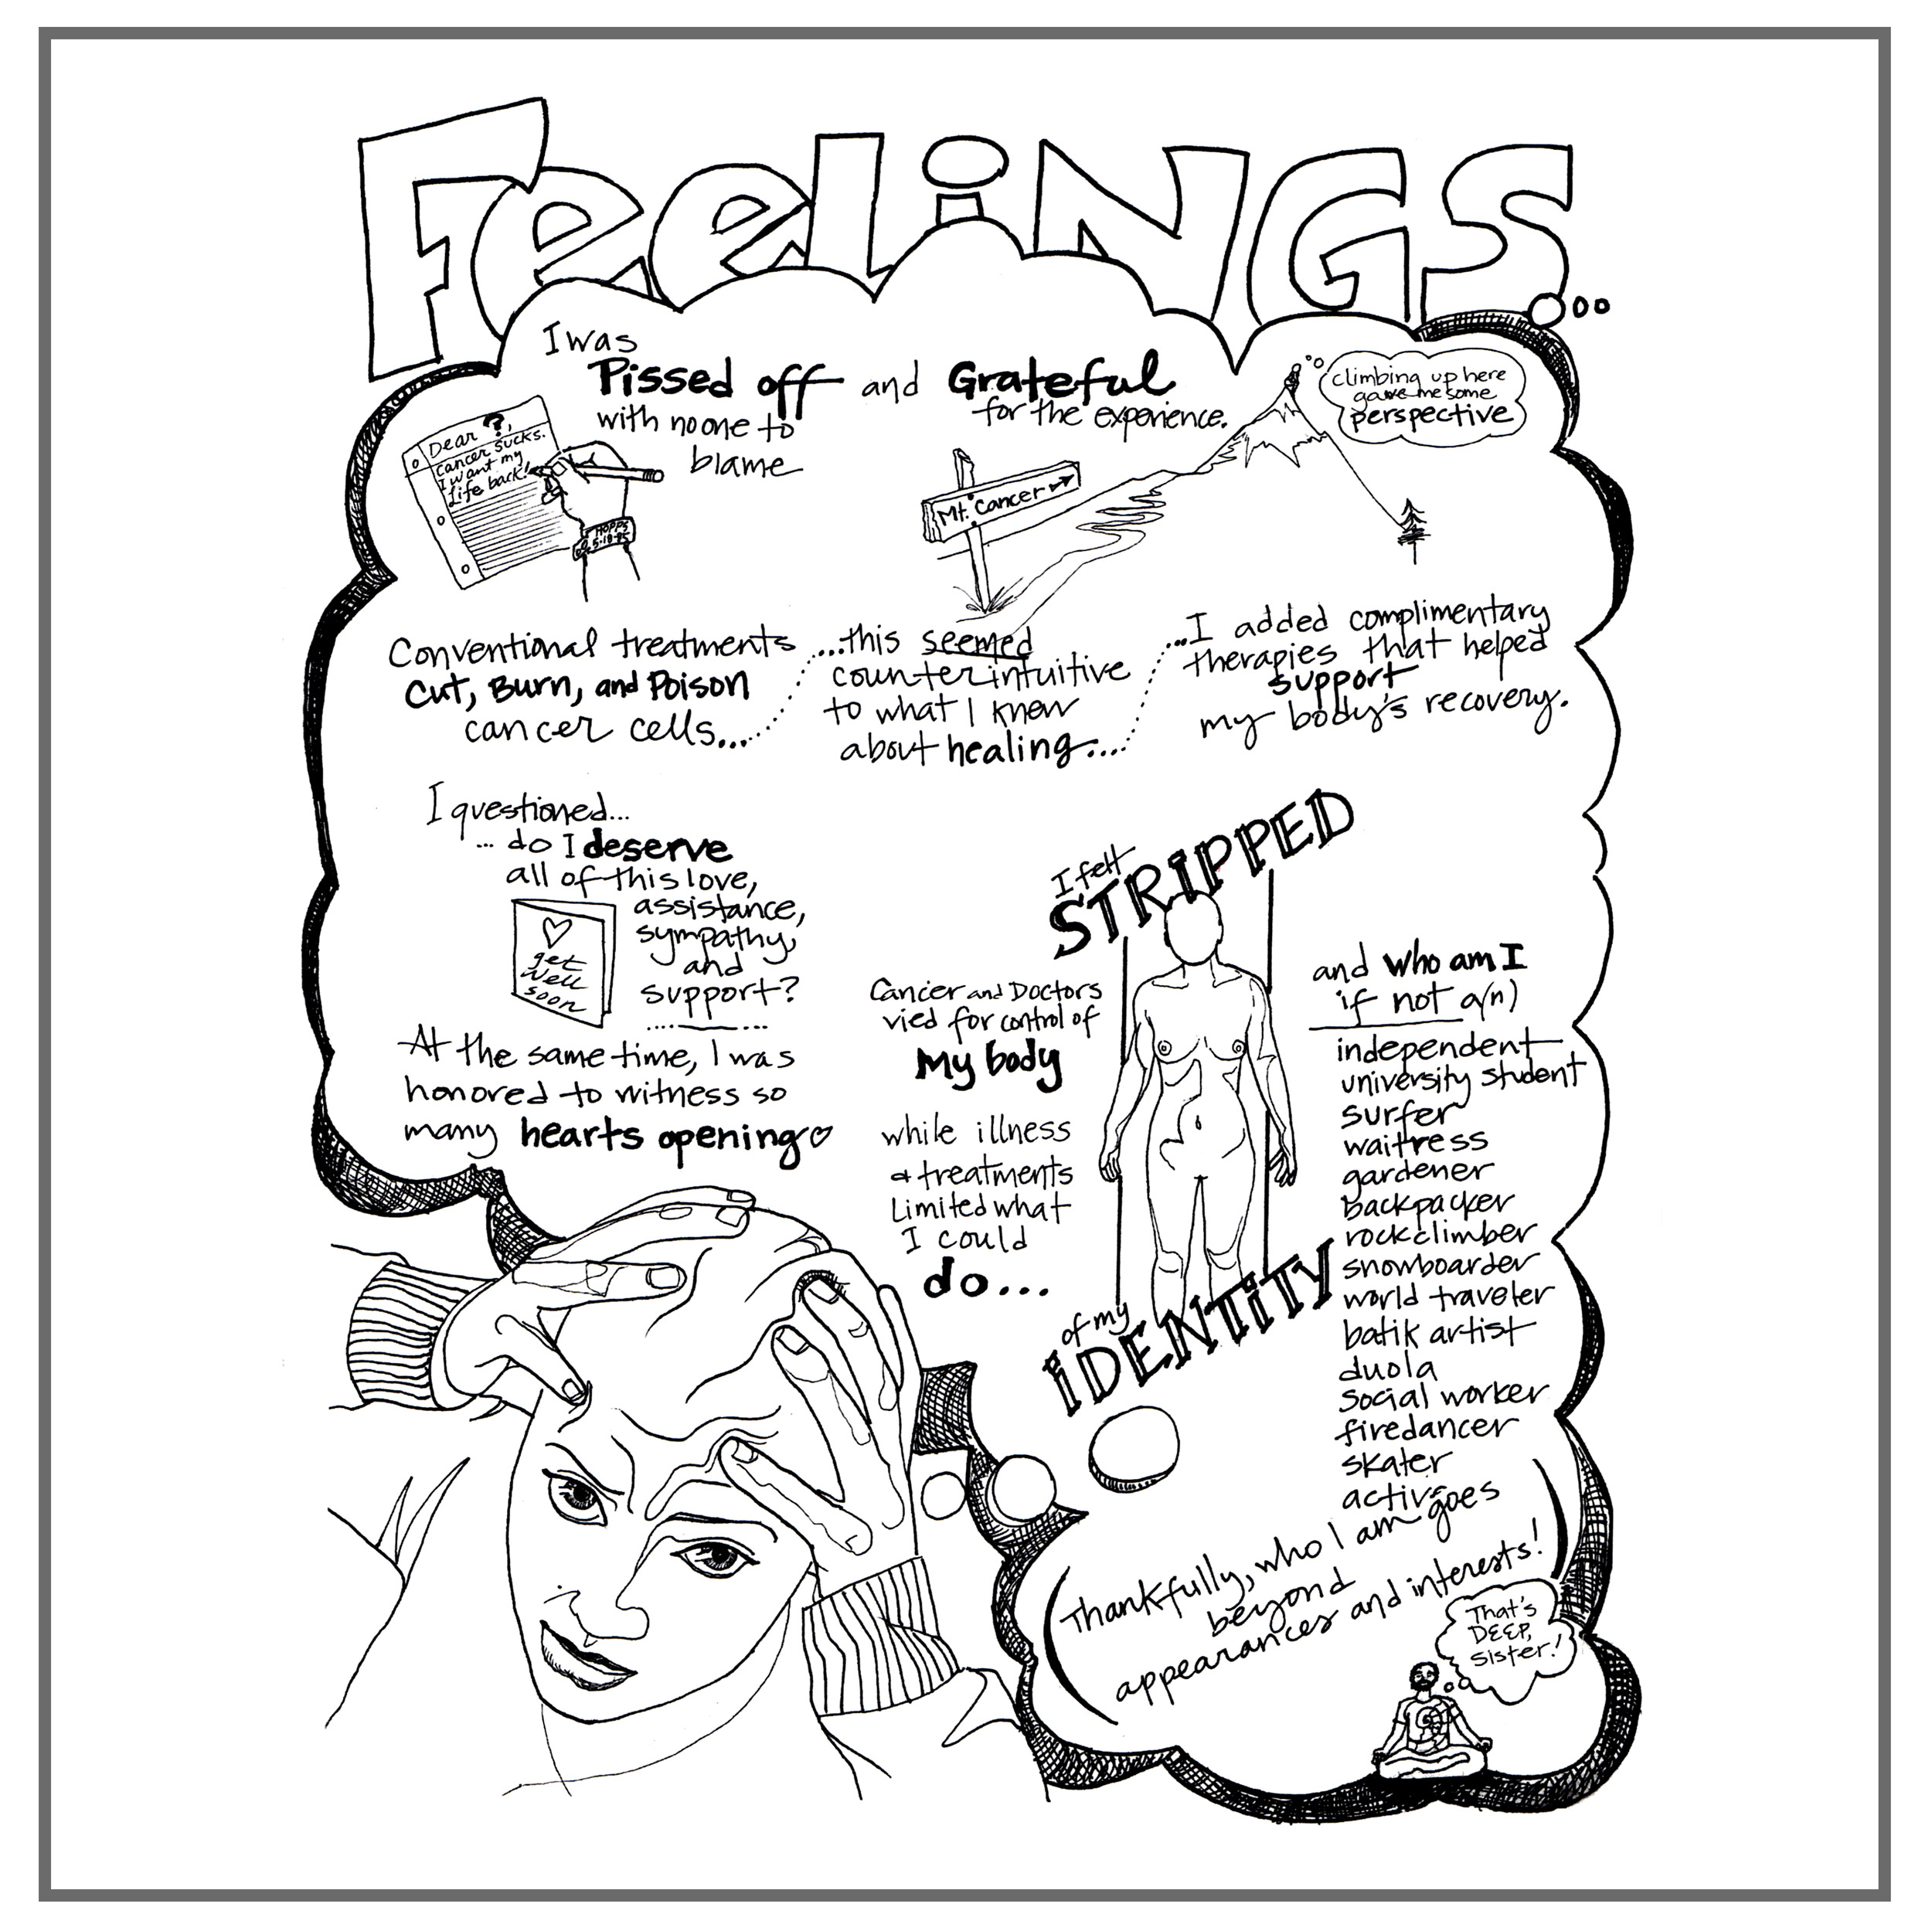 FeeLiNGS...
I was
Pissed off and Grateful
with no one to
blame
for the experience.
climbing up here
gave me some
perspective
Dear ?,
cancer sucks.
I want my
life back!
HOPPS
5-18-85
Mt. Cancer
Conventional treatments
Cut, Burn, and Poison
cancer cells...
...this seemed
counterintuitive
to what I know
about healing....
...I added complimentary
therapies that helped
support
my body's recovery.
I questioned...
... do I deserve
all of this love,
assistance,
sympathy,
and
support?
get
well
soon
At the same time, I was
honored to witness so
many hearts opening
I felt
STRIPPED
Cancer and Doctors
vied for control of
My body
while illness
& treatments
Limited what
I could
do...
of my
iDENTiTY
and who am I
if not a(n)
independent
university student
surfer
waitress
gardener
backpacker
rockclimber
snowboarder
world traveler
batik artist
duola
social worker
firedancer
skater
activ
(Thankfully, who I am goes
beyond
appearances and interests!)
That's
DEEP,
Sister!